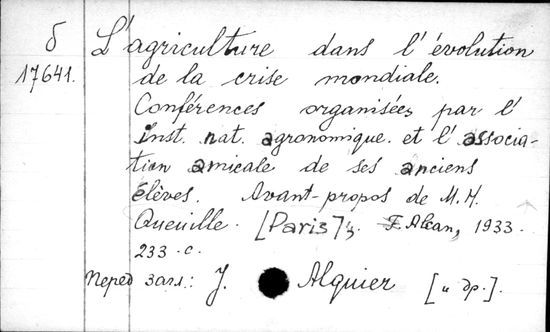 б L'agriculture dans l'évolution
17641. de la crise mondiale.
Conférences organisées par l'
inst. nat. agronomique et l'associa-
tion amicale de ses anciens
élèves. Avant-propos de M. H.
Queuille. [Paris], F. Alcan, 1933.
233 с.
Перед загл.: J. Alquier [и др.].